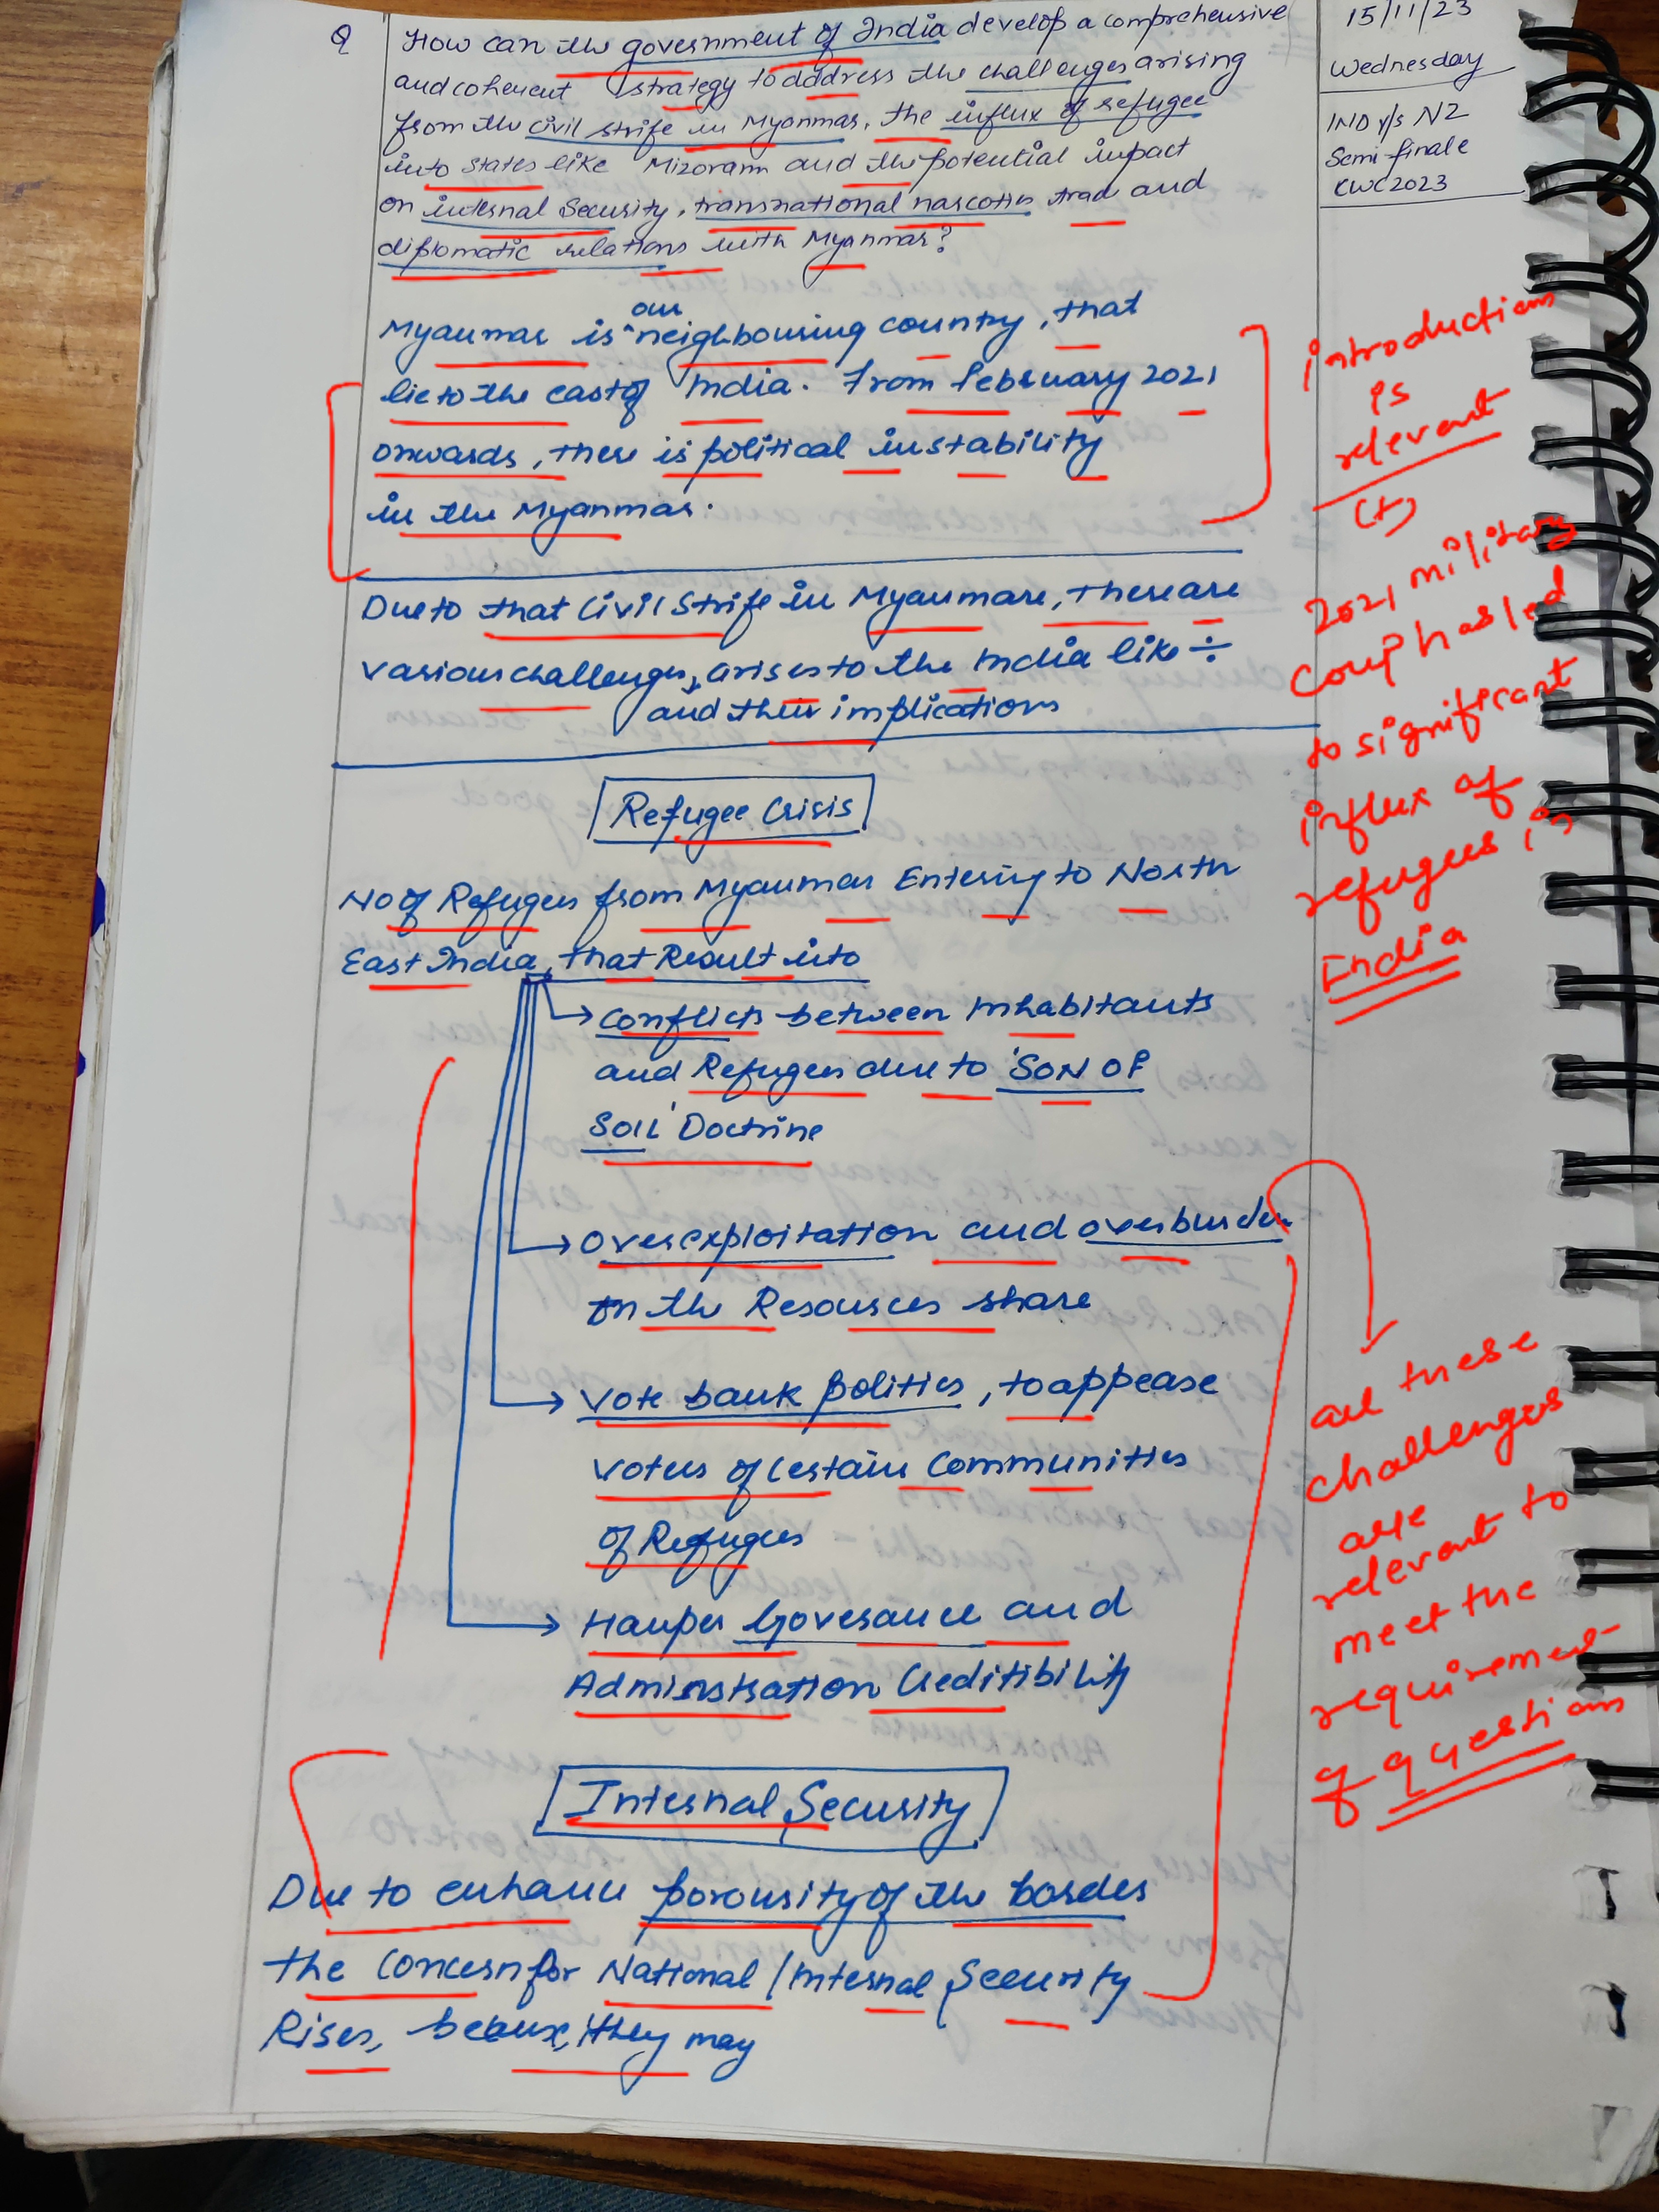 Q
How can the government of India develop a comprehensive
and coherent strategy to address the challenges arising
from the civil strife in Myanmar, the influx of refugee
into states like Mizoram and the potential impact
on internal Security, transnational narcotics trad and
diplomatic relations with Myanmar?
15/11/23
Wednesday
IND v/s NZ
Semi-finale
CWC 2023
our
Myanmar is ^ neighbouring country, that
lie to the east of India. From February 2021
onwards, there is political instability
in the Myanmar.
introduction
is
relevant
(+)
2021 military
coup has led
to significant
influx of
refugees in
India
Due to that Civil Strife in Myanmare, there are
various challenges, arises to the India like ÷
and their implications
Refugee Crisis
No of Refugees from Myanmar Entering to North
East India, that Result into
→ Conflicts between Inhabitants
and Refugees due to 'SON OF
SOIL' Doctrine
→ Overexploitation and overburden
on the Resources share
→ Vote bank politics, to appease
voters of certain Communities
of Refugees
→ Hamper Goverance and
Administration Creditibility
all these
challenges
are
relevant to
meet the
requirement
of questions
Internal Security
Due to enhance porousity of the border
the concern for National / Internal Security
Rises, because, they may